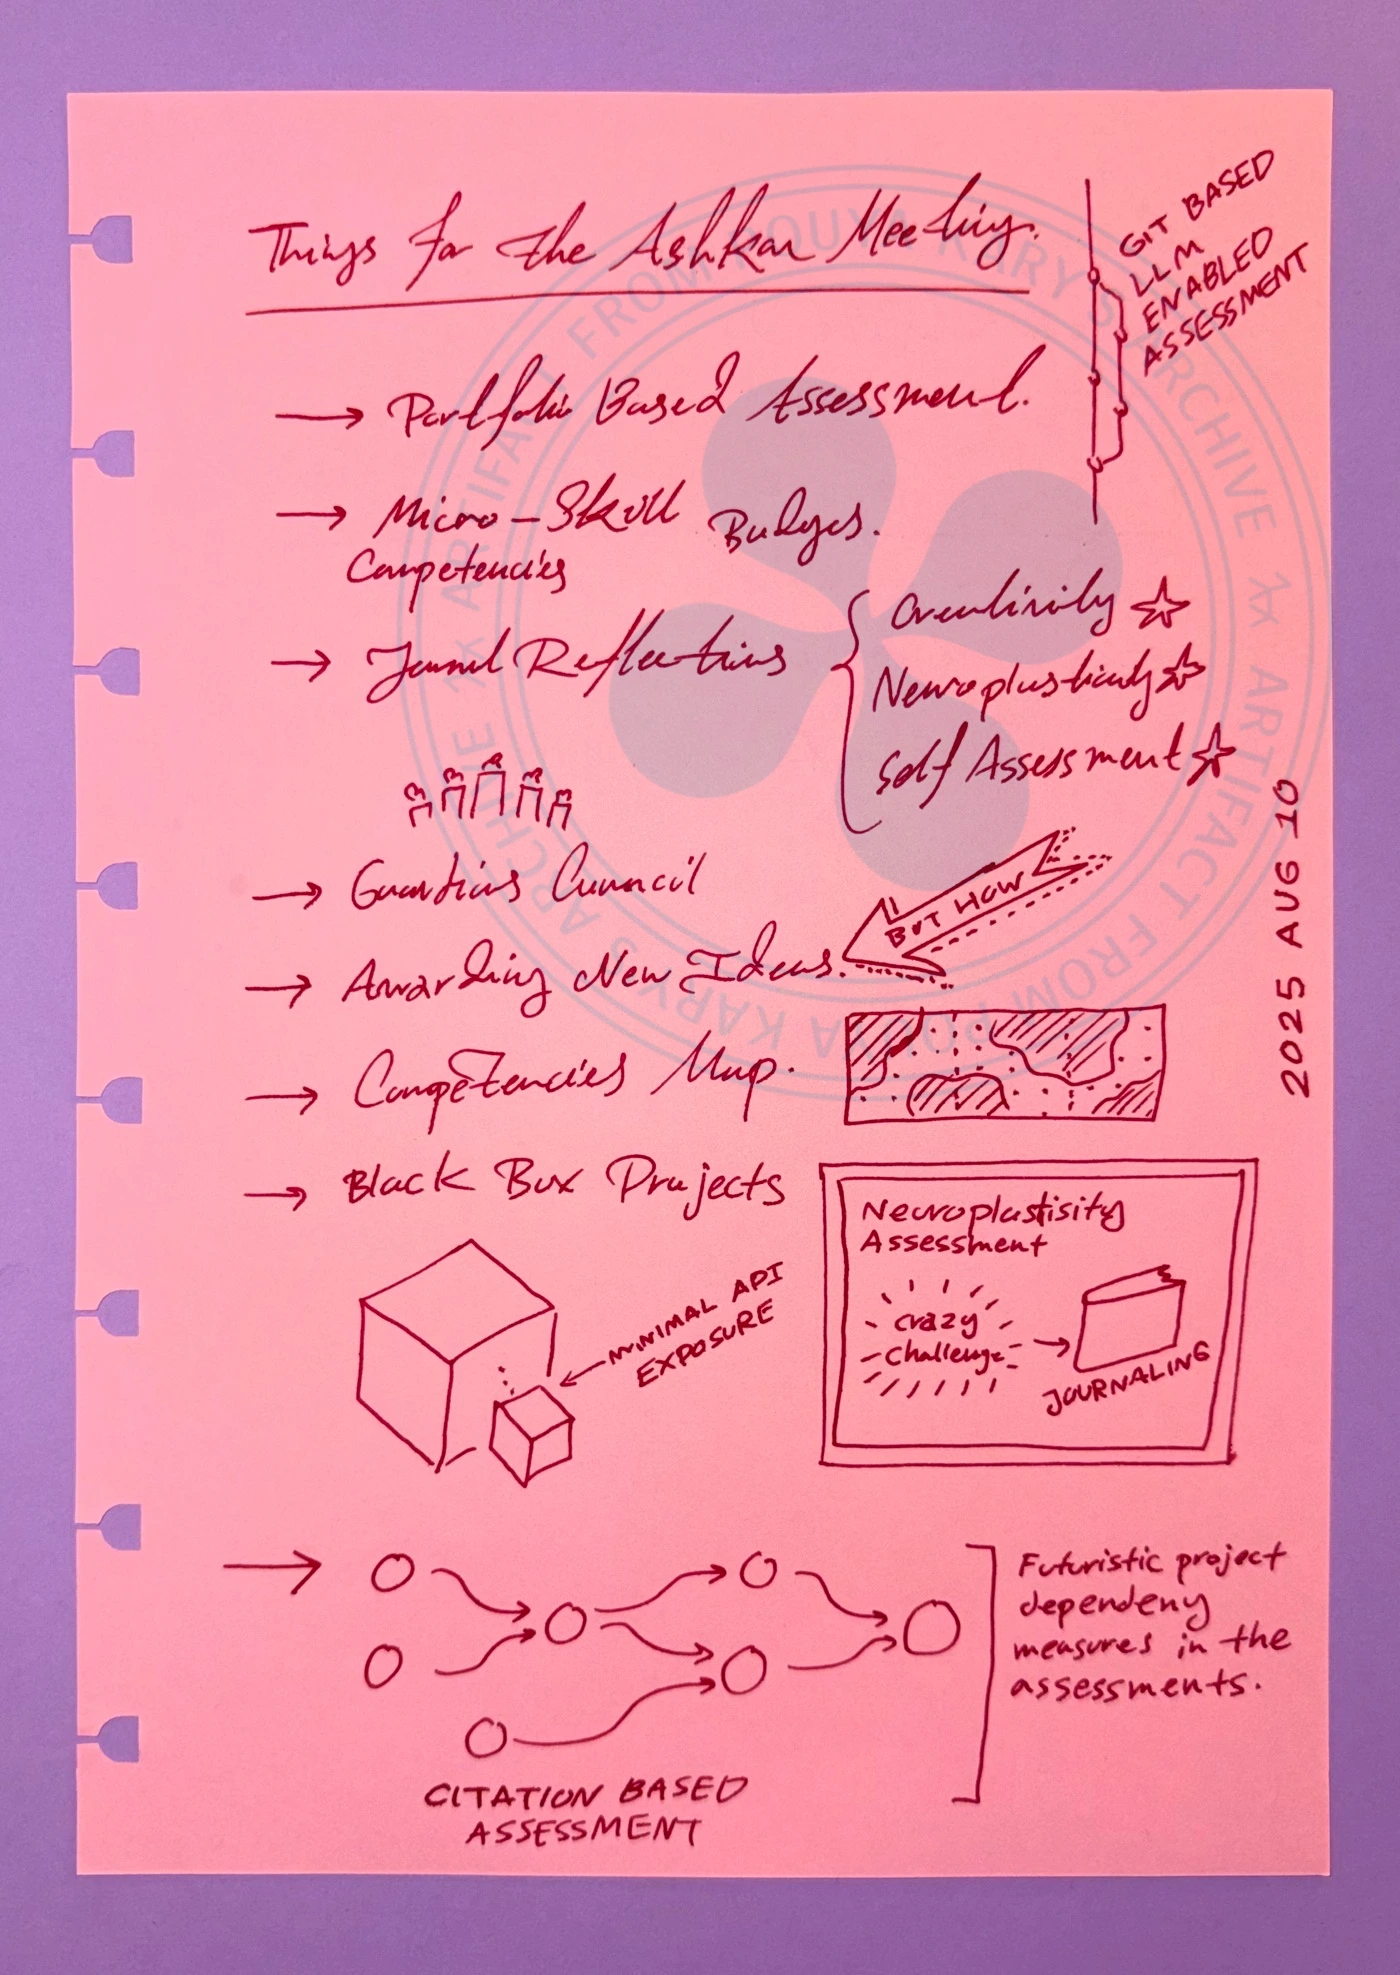 Things for the Ashkar Meeting.
GIT BASED
LLM
ENABLED
ASSESSMENT
→ Portfolio Based Assessment.
→ Micro-Skill Badges.
Competencies
→ Journal Reflections
Creativity ☆
Neuroplasticity ☆
Self Assessment ☆
2025 AUG 10
→ Guardians Council
→ Awarding New Ideas.
BUT HOW
→ Competencies Map.
→ Black Box Projects
MINIMAL API
EXPOSURE
Neuroplastisity
Assessment
crazy
challenge
JOURNALING
Futuristic project
dependeny
measures in the
assessments.
CITATION BASED
ASSESSMENT
ARTIFACT FROM POUYA KARY'S ARCHIVE
ARTIFACT FROM POUYA KARY'S ARCHIVE